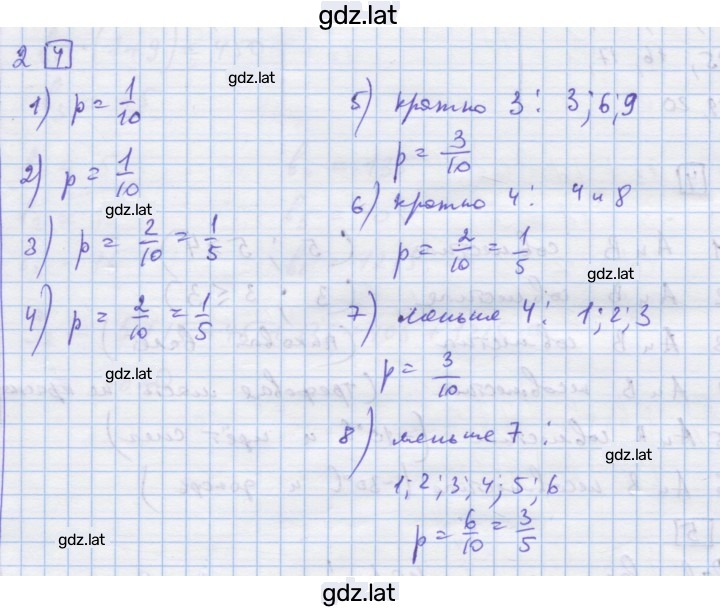 gdz.lat
2 4
gdz.lat
1) p = 1/10
2) p = 1/10
gdz.lat
3) p = 2/10 = 1/5
4) p = 2/10 = 1/5
gdz.lat
5) кратно 3: 3; 6; 9
gdz.lat
p = 3/10
6) кратно 4: 4 и 8
p = 2/10 = 1/5
gdz.lat
7) меньше 4: 1; 2; 3
p = 3/10
8) меньше 7:
gdz.lat
1; 2; 3; 4; 5; 6
p = 6/10 = 3/5
gdz.lat
gdz.lat
gdz.lat